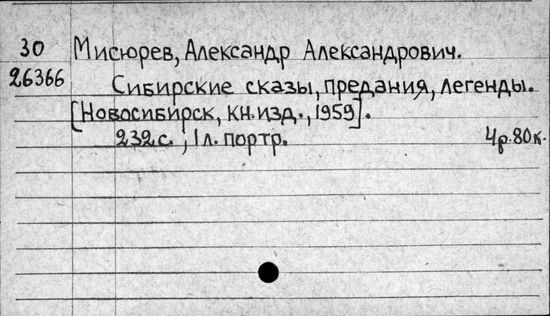 30 Мисюрев, Александр Александрович.
26366 Сибирские сказы, предания, легенды.
[Новосибирск, кн. изд., 1959].
232 с., 1 л. портр. 4р.80к.